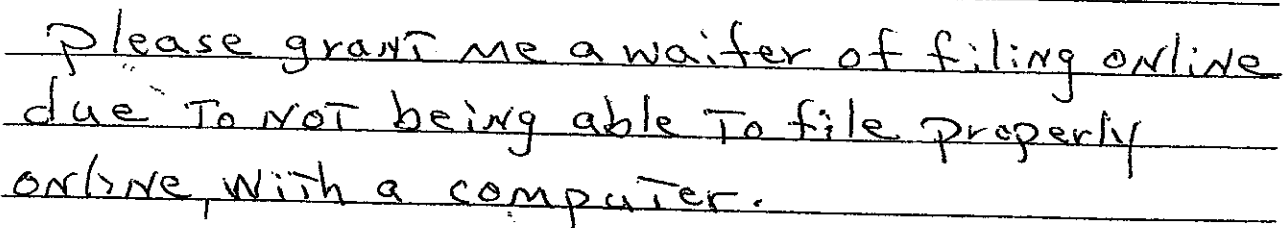 Please grant me a waifer of filing online
due to not being able to file properly
online, with a computer.